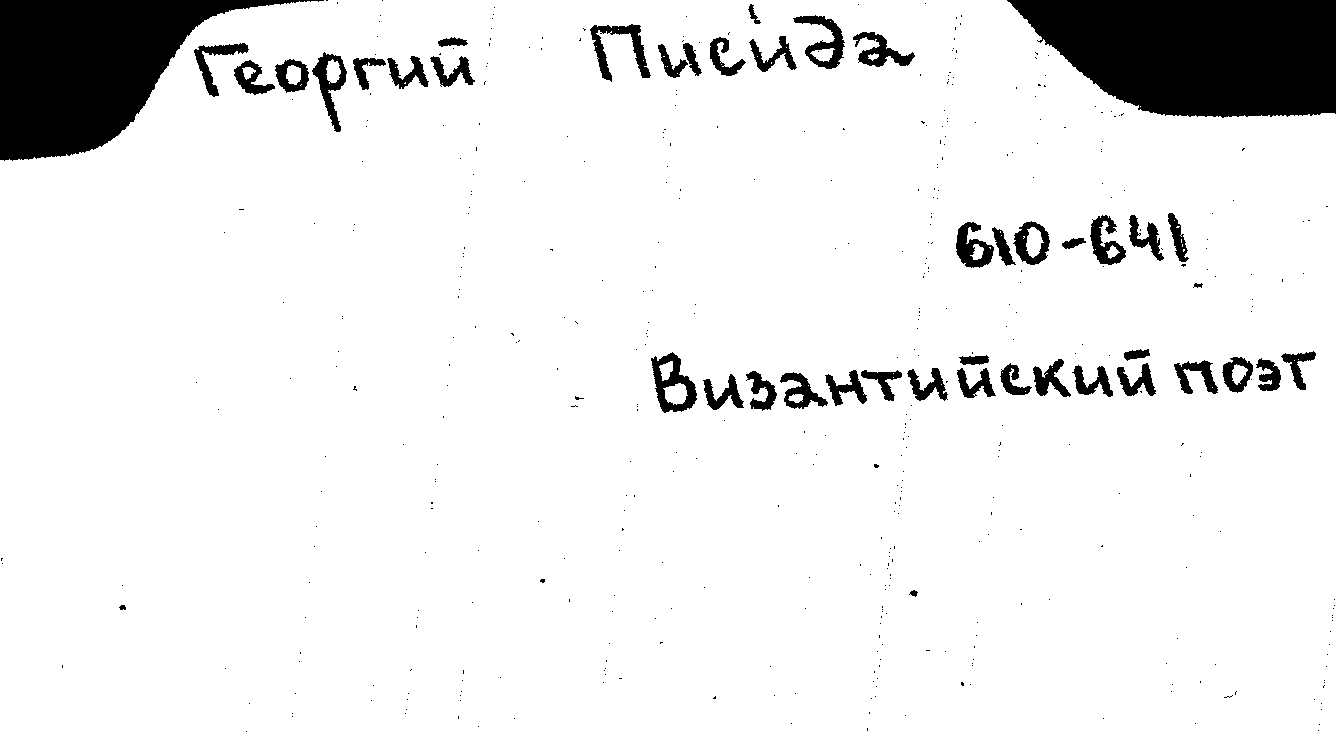 Георгий Писи́да
610-641
Византийский поэт